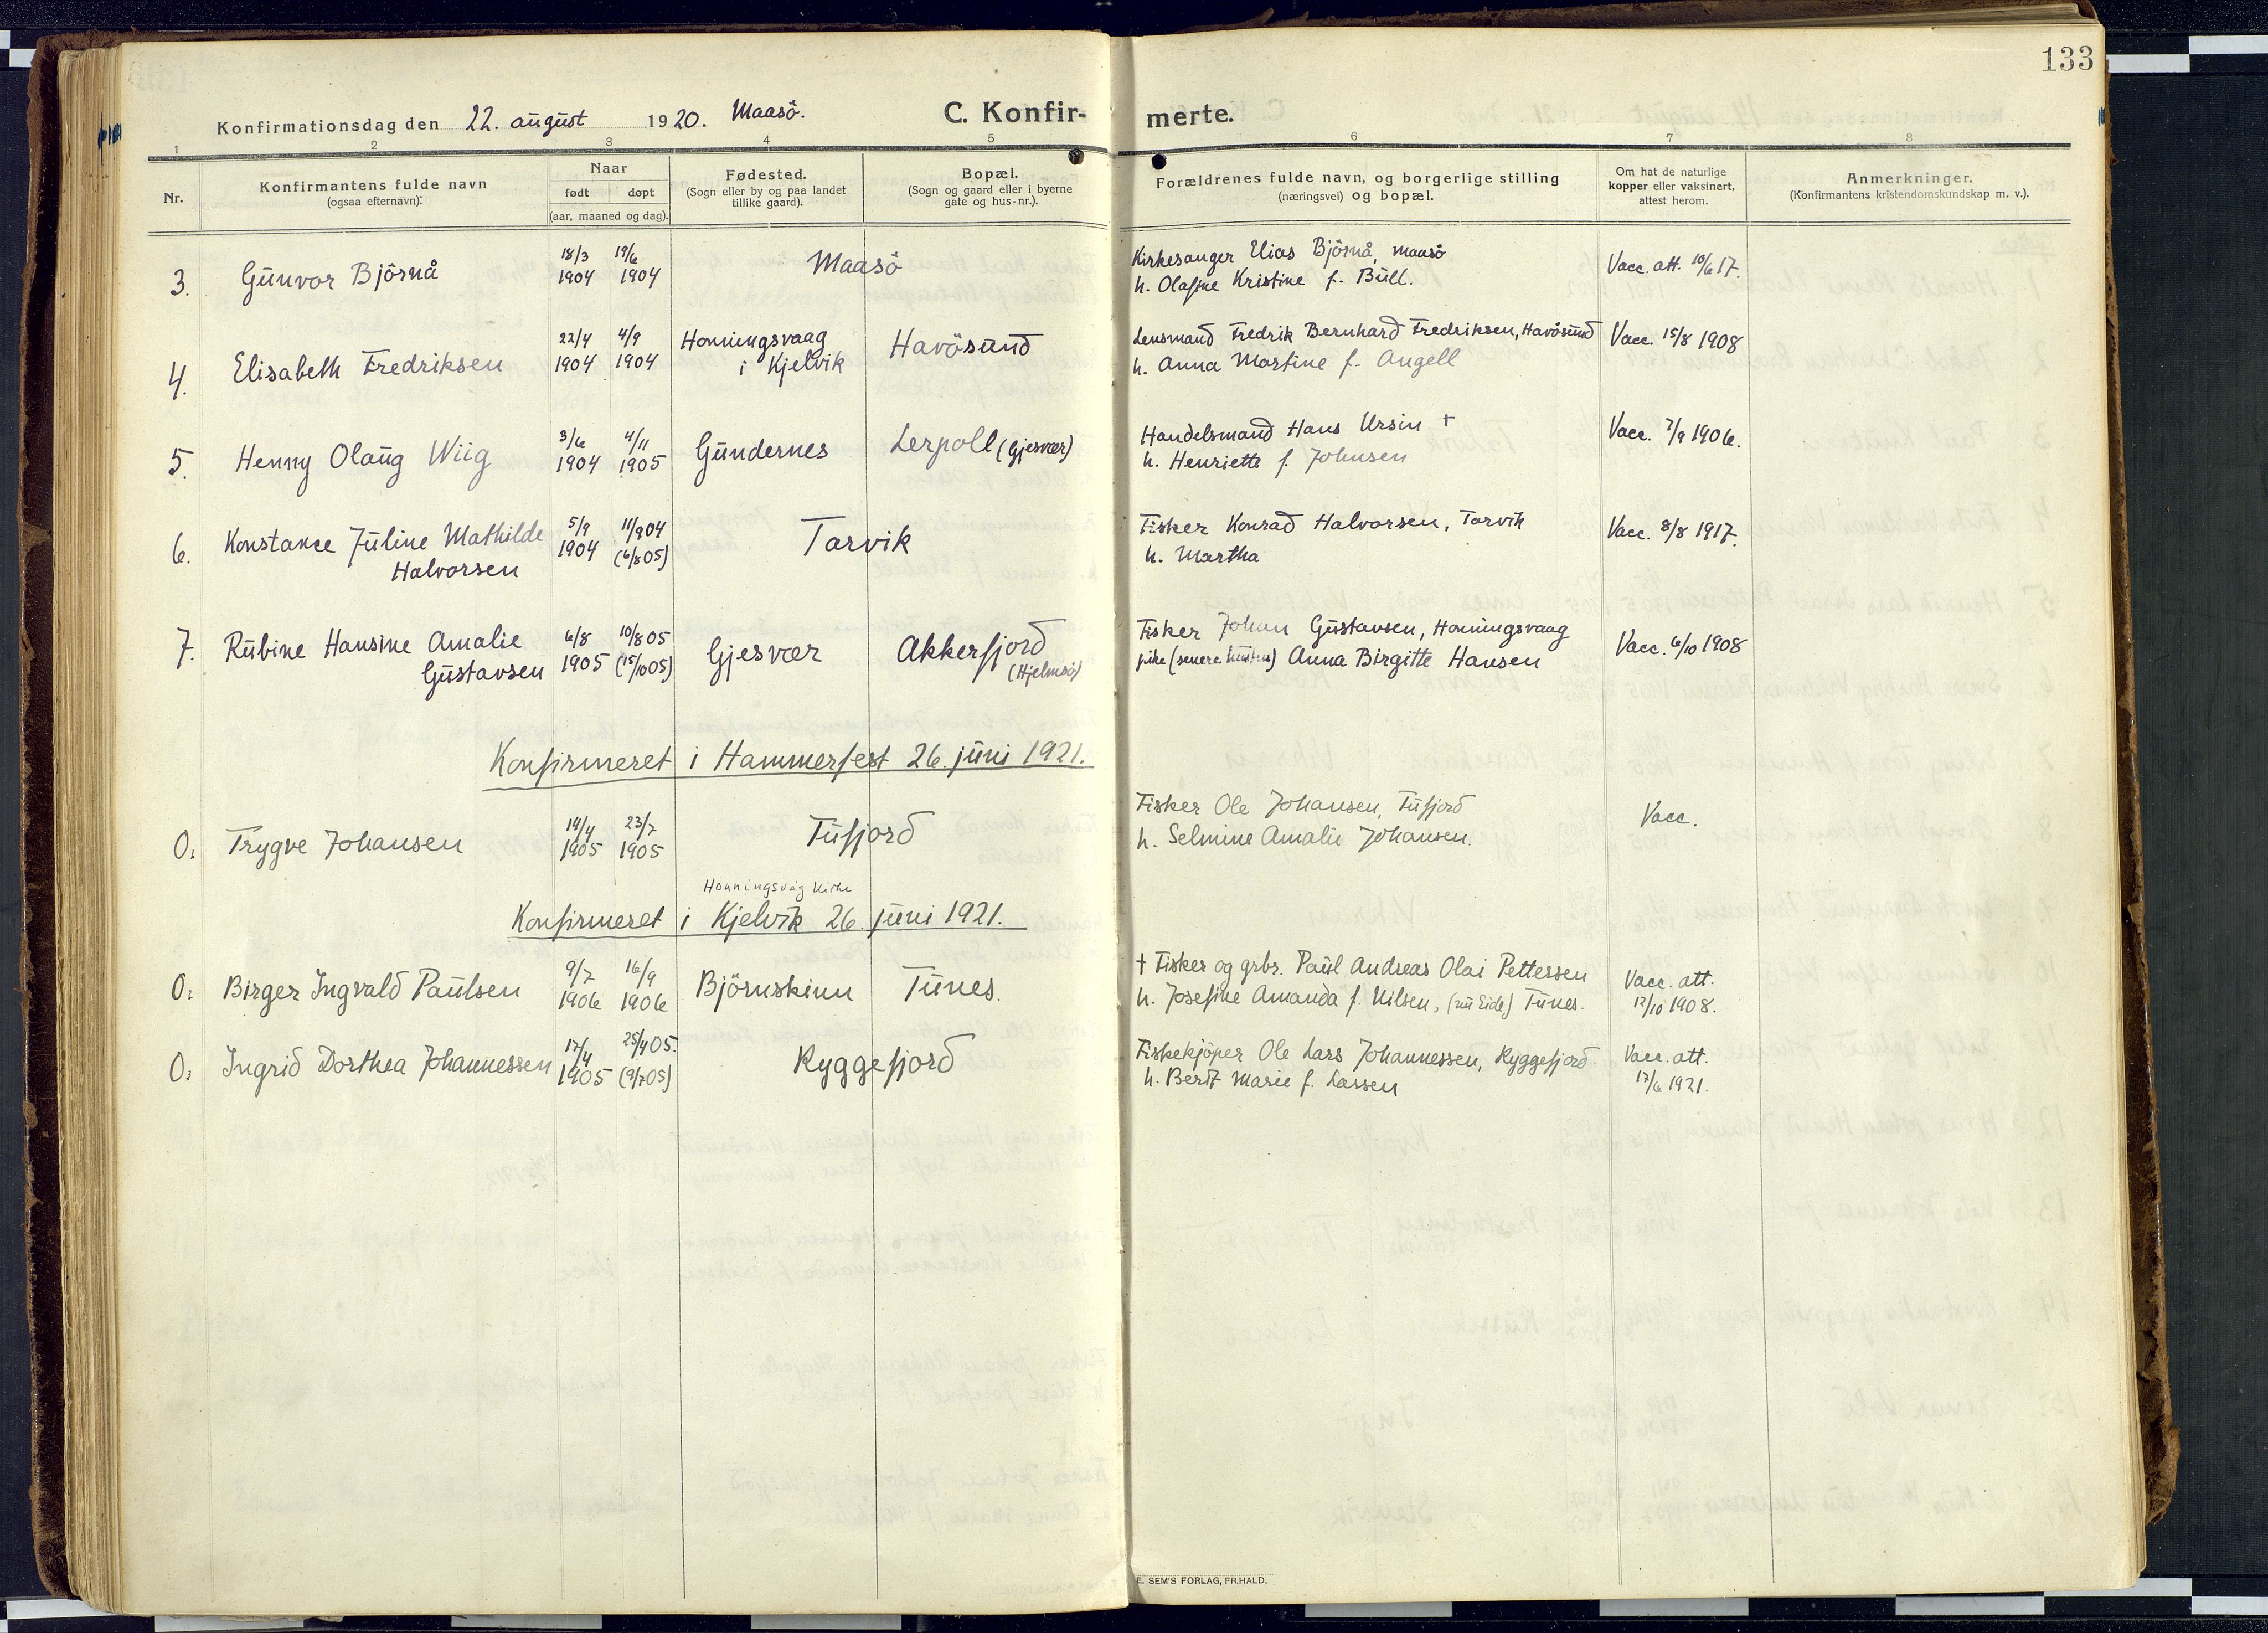 133
Konfirmationsdag den 22. august 1920. Maasö. C. Konfirmerte.
1 2 3 4 5 6 7 8
Nr.
Konfirmantens fulde navn
(ogsaa efternavn):
Naar
født døpt
(aar, maaned og dag).
Fødested.
(Sogn eller by og paa landet
tillike gaard).
Bopæl.
(Sogn og gaard eller i byerne
gate og hus-nr.).
Forældrenes fulde navn, og borgerlige stilling
(næringsvei) og bopæl.
Om hat de naturlige
kopper eller vaksinert,
attest herom.
Anmerkninger.
(Konfirmantens kristendomskundskap m. v.).
3. Gunvor Björnå 18/3 1904 19/6 1904 Maasö Kirkesanger Elias Björnå, Maasö
h. Olafine Kristine f. Bull. Vacc. att. 10/6 17.
4. Elisabeth Fredriksen 22/4 1904 4/9 1904 Honningsvaag
i Kjelvik Havösund Lensmand Fredrik Bernhard Fredriksen, Havösund
h. Anna Martine f. Angell Vacc. 15/8 1908
5. Henny Olaug Wiig 3/6 1904 4/11 1905 Gundernes Lerpoll (Gjesvær) Handelsmand Hans Ursin +
h. Henriette f. Johnsen Vacc. 7/9 1906.
6. Konstance Juline Mathilde
Halvorsen 5/9 1904 11/9 04
(6/8 05) Tarvik Fisker Konrad Halvorsen, Tarvik
h. Martha Vacc. 8/8 1917.
7. Rubine Hansine Amalie
Gustavsen 6/8 1905 10/8 05
(15/10 05) Gjesvær Akkerfjord
(Hjelmsö) Fisker Johan Gustavsen, Honningsvaag
pike (senere hustru) Anna Birgitte Hansen Vacc. 6/10 1908
Konfirmeret i Hammerfest 26. juni 1921.
0. Trygve Johansen 14/4 1905 23/7 1905 Tufjord Fisker Ole Johansen, Tufjord
h. Selmine Amalie Johansen. Vacc.
Honningsvåg Kirke
Konfirmeret i Kjelvik 26. juni 1921.
0. Birger Ingvald Paulsen 9/7 1906 16/9 1906 Björnskinn Tunes. + Fisker og grbr. Paul Andreas Olai Pettersen
h. Josefine Amanda f. Nilsen, (nu Eide) Tunes. Vacc. att.
12/10 1908.
0. Ingrid Dorthea Johannessen 17/4 1905 25/4 05.
(9/7 05) Ryggefjord Fiskekjöper Ole Lars Johannessen, Ryggefjord
h. Berit Marie f. Larsen Vacc. att.
17/6 1921.
E. SEM'S FORLAG, FR.HALD.